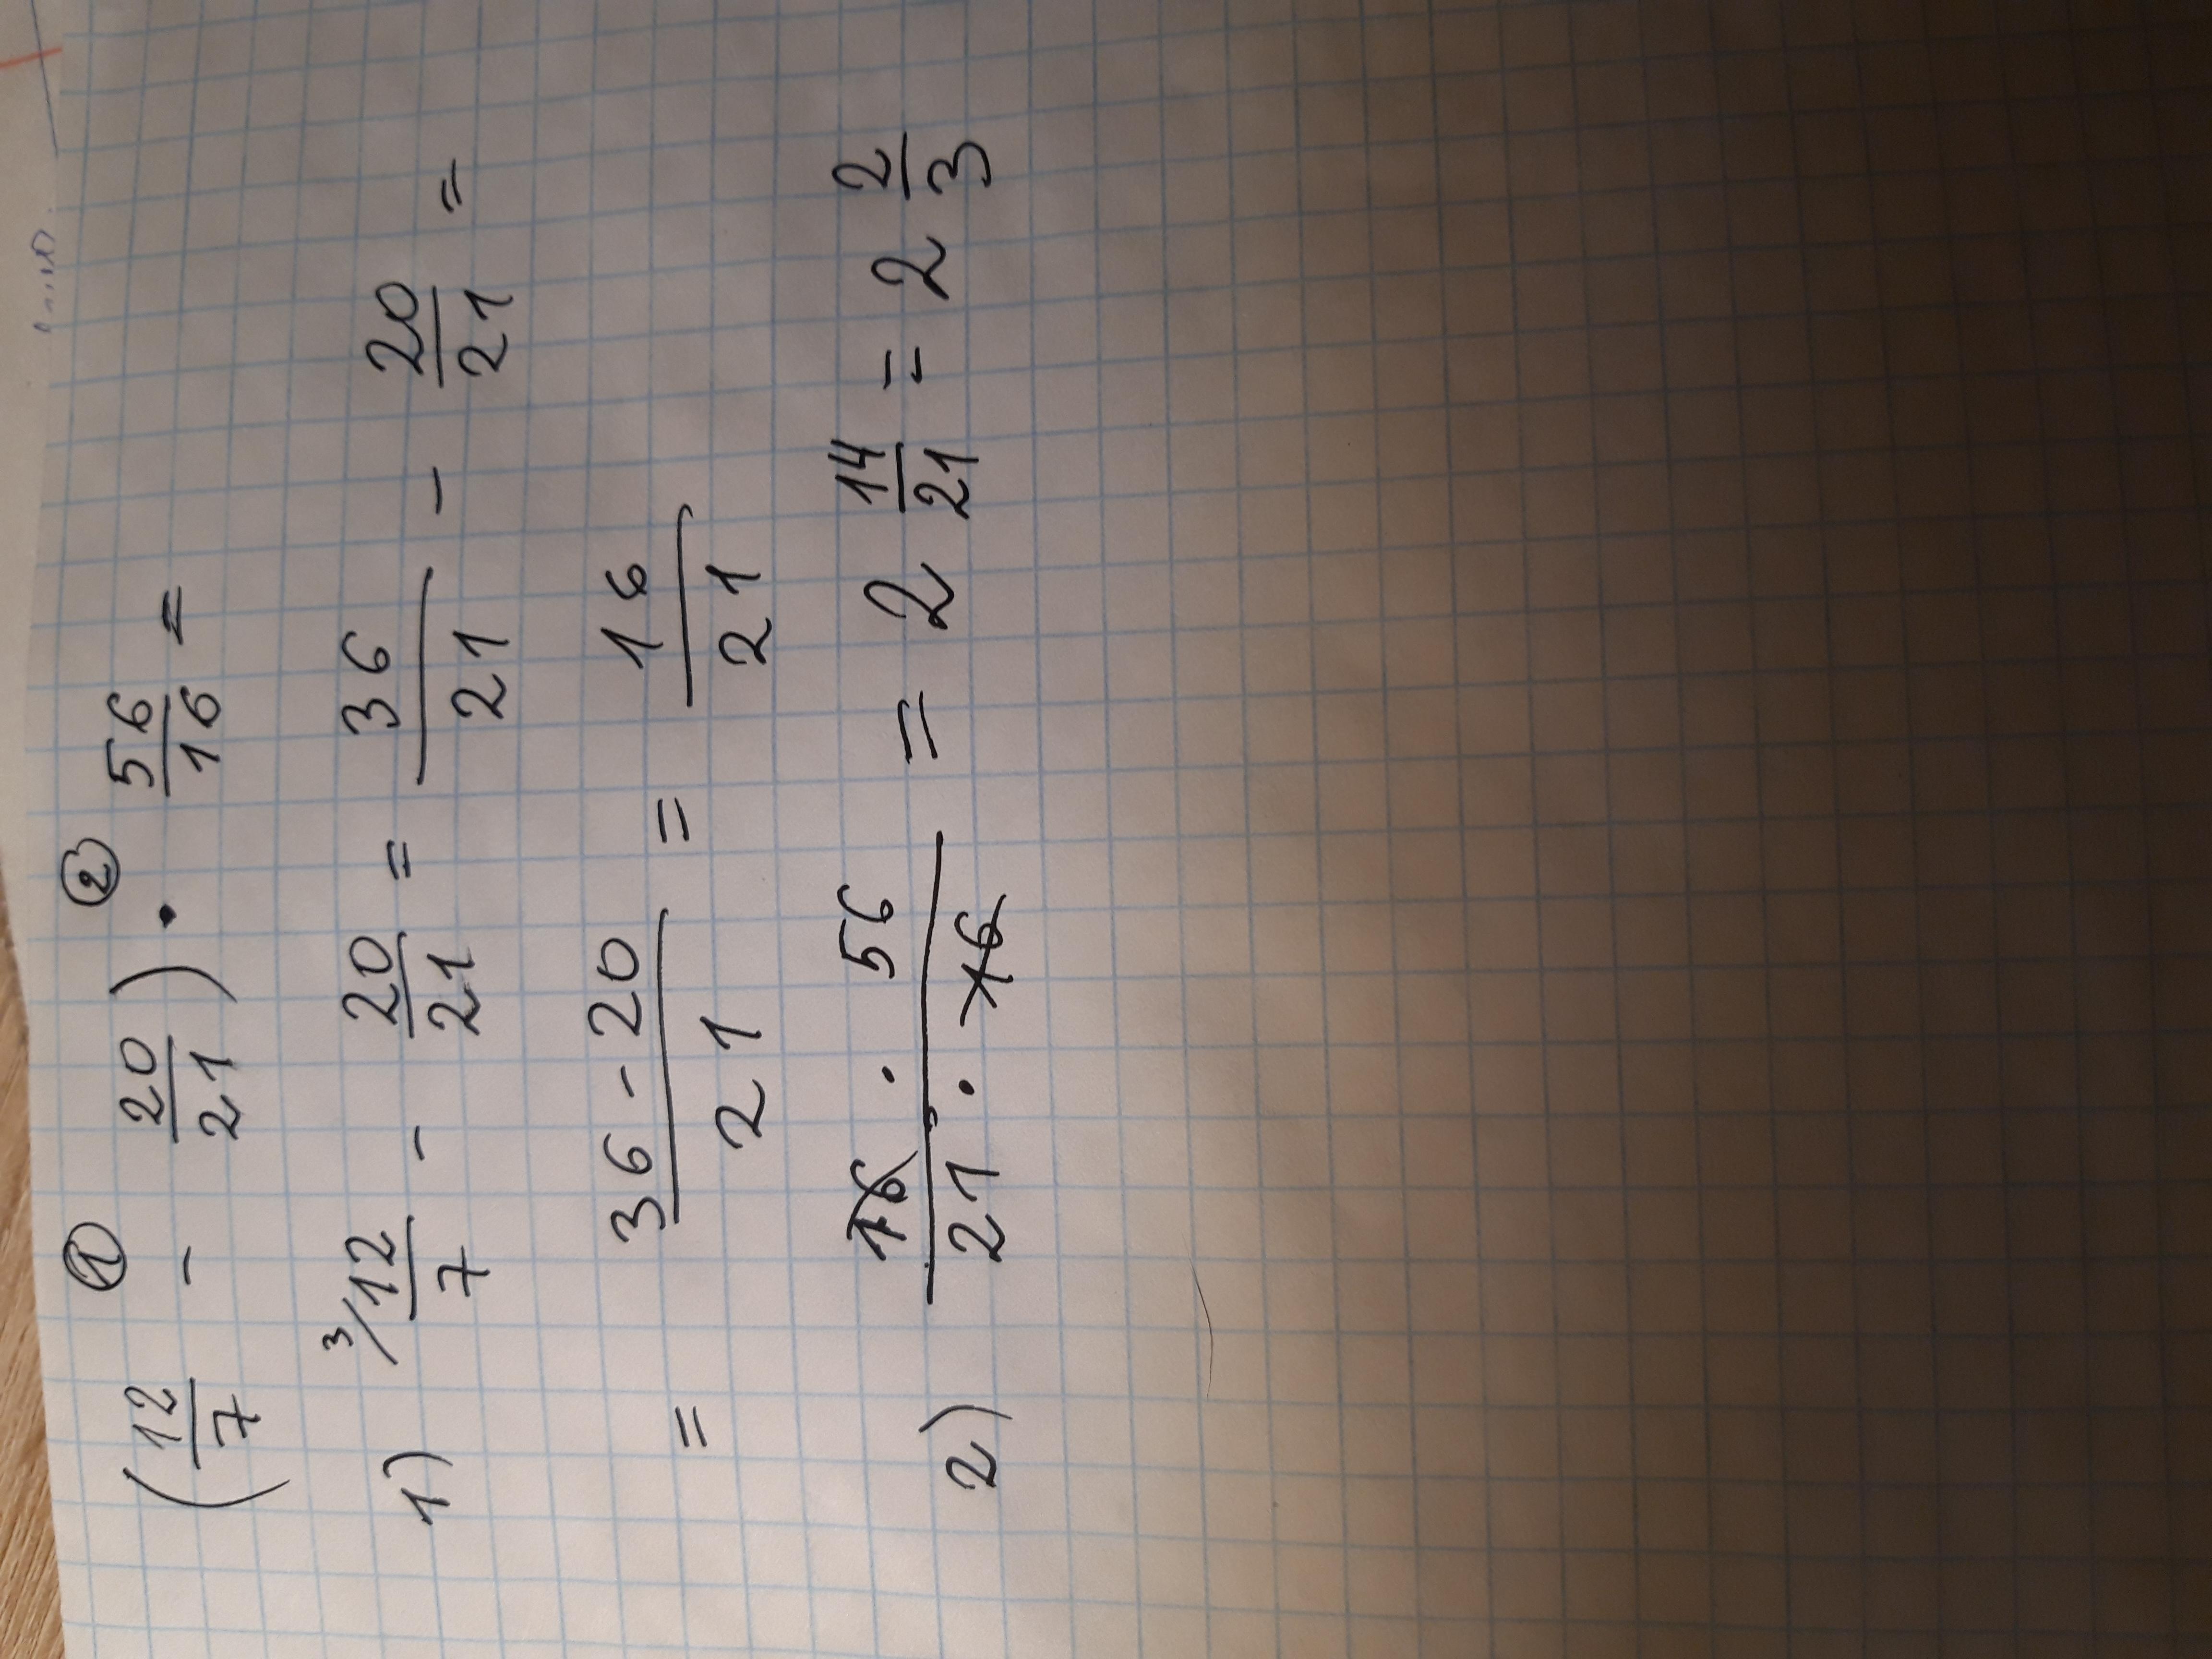 ① ②
(12/7 - 20/21) · 56/16 =
1) 3/ 12/7 - 20/21 = 36/21 - 20/21 =
= 36-20/21 = 16/21
2) 16 · 56/21 · 16 = 2 14/21 = 2 2/3